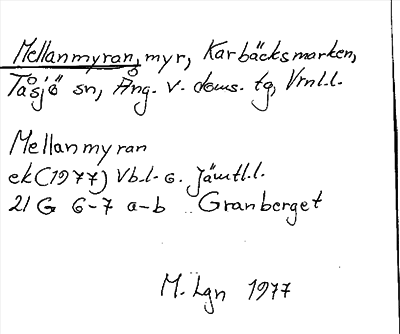 Mellanmyran, myr, Karbäcksmarken,
Tåsjö sn, Ång. v. doms. tg, Vrnl.l.
Mellanmyran
ek (1977) Vb.l. o. Jämtl.l.
21 G 6-7 a-b Granberget
M. Lgn 1977